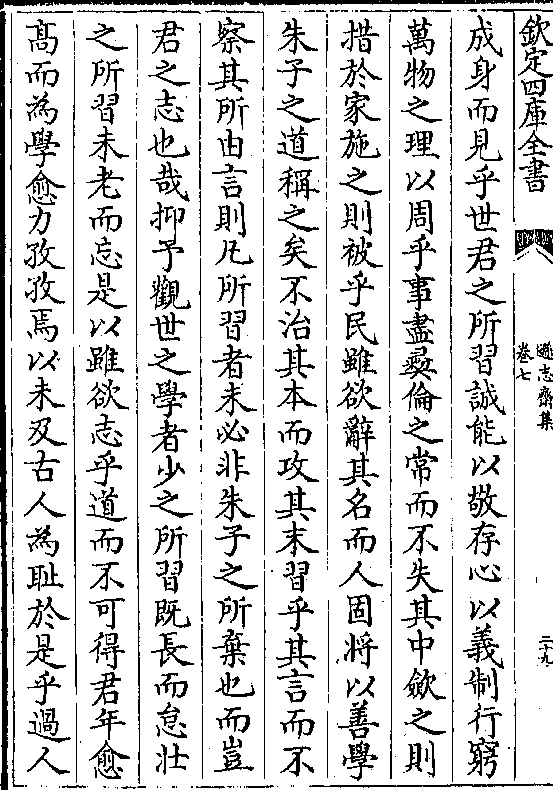 欽定四庫全書
遜志齋集
卷七
二十九
成身而見乎世君之所習誠能以敬存心以義制行窮
萬物之理以周乎事盡彞倫之常而不失其中斂之則
措於家施之則被乎民雖欲辭其名而人固將以善學
朱子之道稱之矣不治其本而攻其末習乎其言而不
察其所由言則凡所習者未必非朱子之所棄也而豈
君之志也哉抑予觀世之學者少之所習既長而怠壯
之所習未老而忘是以雖欲志乎道而不可得君年愈
髙而為學愈力孜孜焉以未及古人為耻於是乎過人